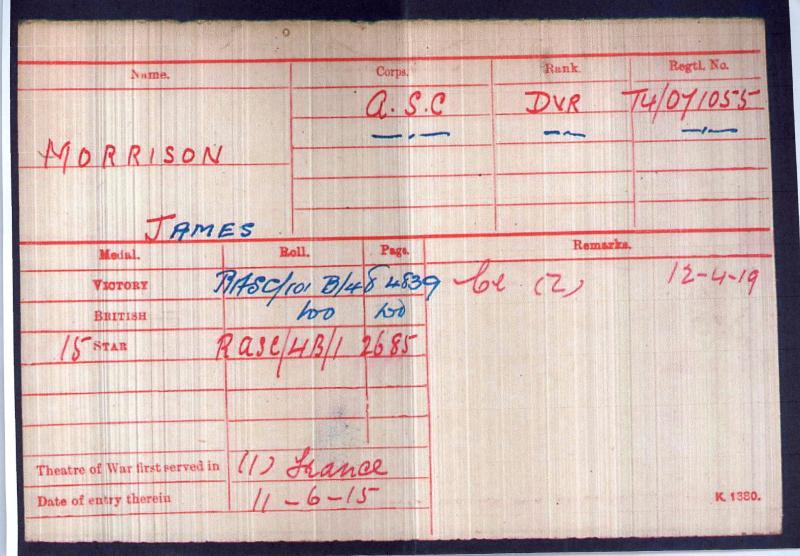 Name. Corps. Rank. Regtl. No.
A.S.C DVR T4/071055
MORRISON
JAMES
Medal. Roll. Page. Remarks.
VICTORY RASC/101 B/48 4839 Cl (Z) 12-4-19
BRITISH do do
15 STAR RASC/4B/1 2685
Theatre of War first served in (1) France
Date of entry therein 11-6-15
K 1380.